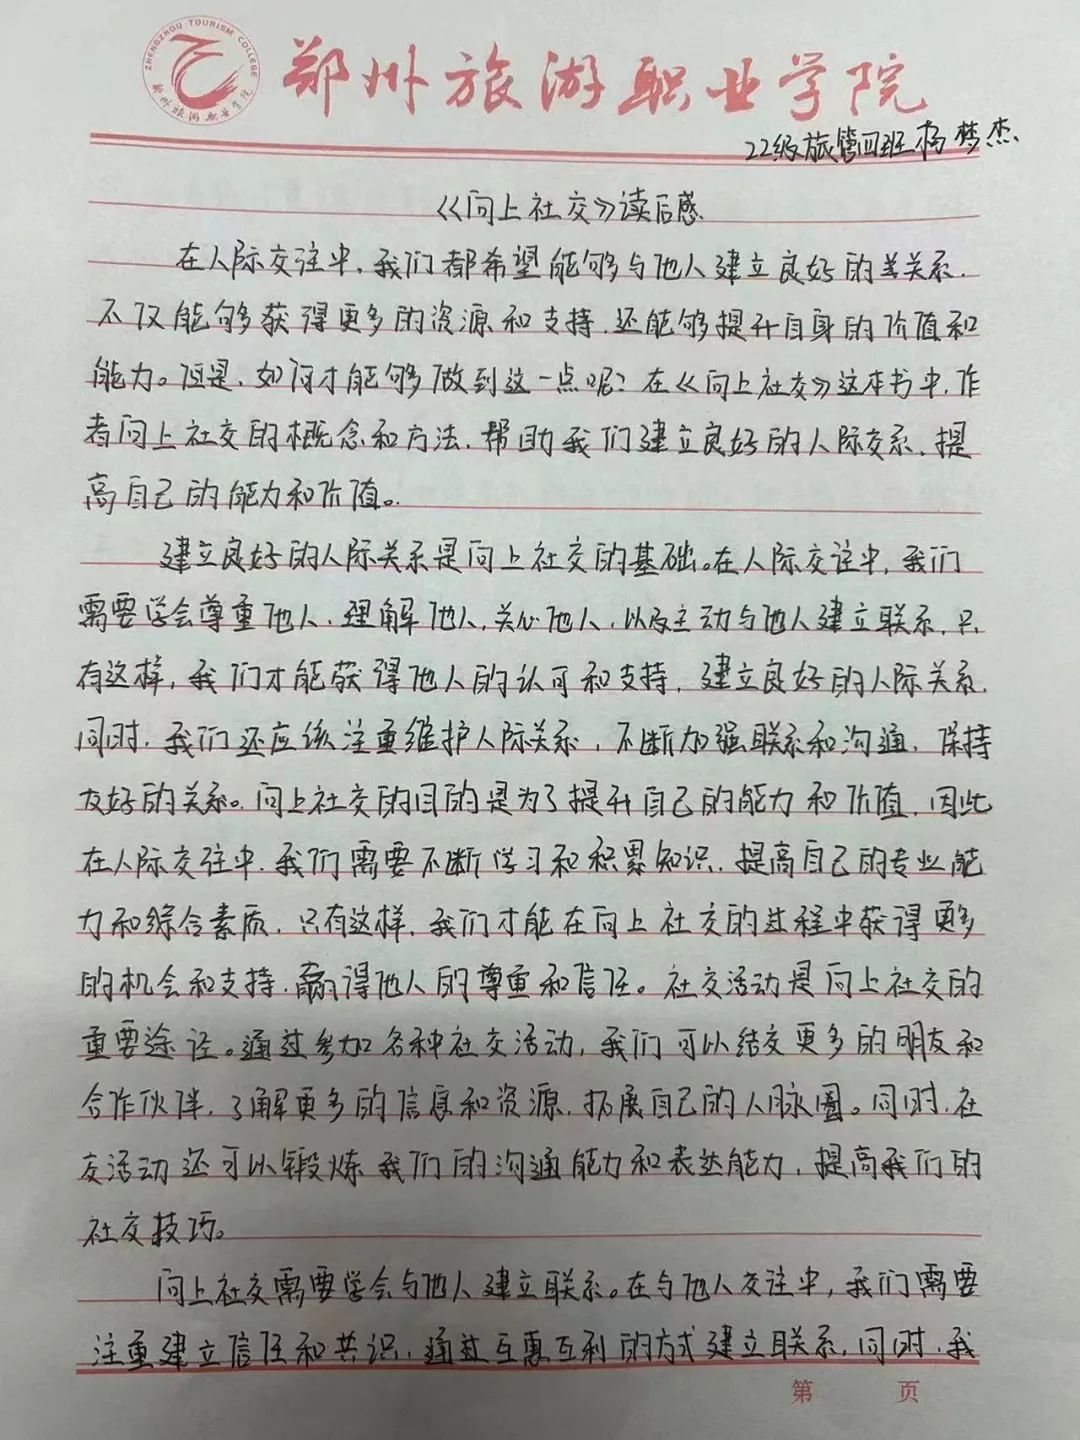 ZHENGZHOU TOURISM COLLEGE
郑州旅游职业学院
郑州旅游职业学院
22级旅管四班杨梦杰
《向上社交》读后感
在人际交往中，我们都希望能够与他人建立良好的关系，
不仅能够获得更多的资源和支持，还能够提升自身的价值和
能力。但是，如何才能够做到这一点呢？在《向上社交》这本书中，作
者向上社交的概念和方法，帮助我们建立良好的人际交系，提
高自己的能力和价值。
建立良好的人际关系是向上社交的基础。在人际交往中，我们
需要学会尊重他人，理解他人，关心他人，以及主动与他人建立联系，只
有这样，我们才能获得他人的认可和支持，建立良好的人际关系，
同时，我们还应该注重维护人际关系，不断加强联系和沟通，保持
友好的关系。向上社交的目的是为了提升自己的能力和价值，因此
在人际交往中，我们需要不断学习和积累知识，提高自己的专业能
力和综合素质，只有这样，我们才能在向上社交的过程中获得更多
的机会和支持，赢得他人的尊重和信任。社交活动是向上社交的
重要途径。通过参加各种社交活动，我们可以结交更多的朋友和
合作伙伴，了解更多的信息和资源，拓展自己的人脉圈。同时，在
交活动还可以锻炼我们的沟通能力和表达能力，提高我们的
社交技巧。
向上社交需要学会与他人建立联系。在与他人交往中，我们需要
注重建立信任和共识，通过互惠互利的方式建立联系，同时，我
第 页